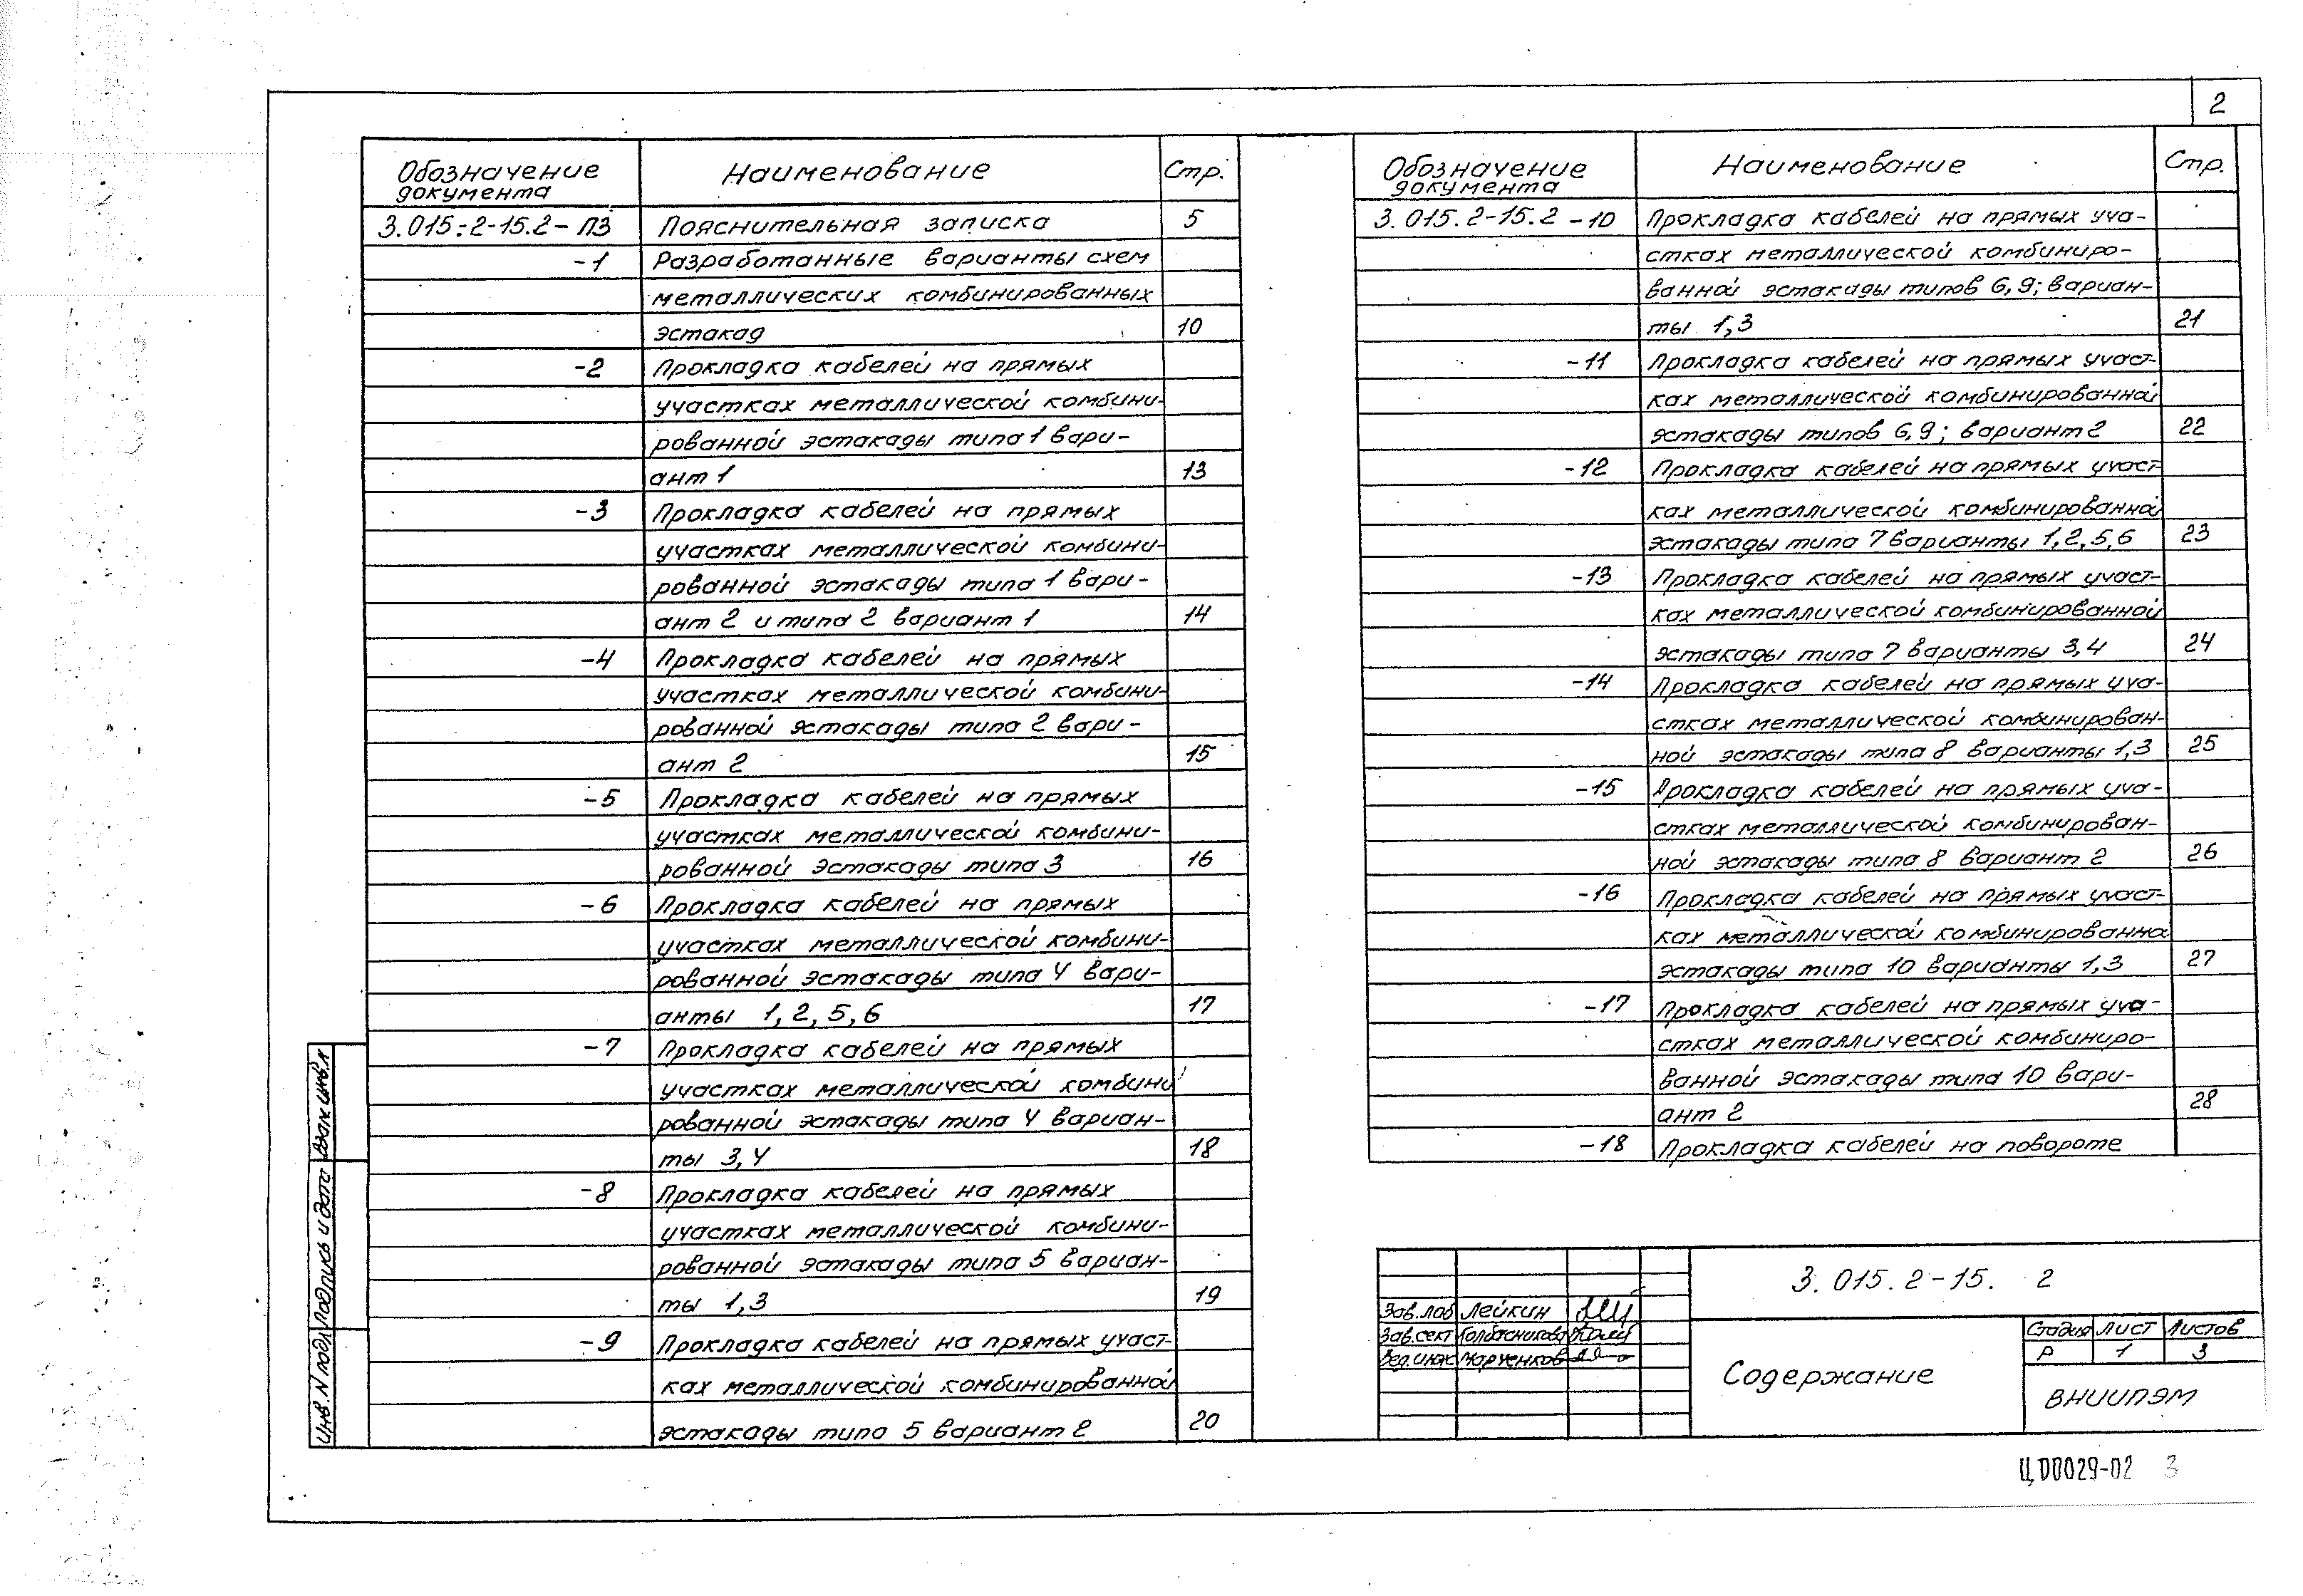 2
Обозначение документа Наименование Стр.
3.015.2-15.2-ПЗ Пояснительная записка 5
-1 Разработанные варианты схем
металлических комбинированных
эстакад 10
-2 Прокладка кабелей на прямых
участках металлической комбини-
рованной эстакады типа 1 вари-
ант 1 13
-3 Прокладка кабелей на прямых
участках металлической комбини-
рованной эстакады типа 1 вари-
ант 2 и типа 2 вариант 1 14
-4 Прокладка кабелей на прямых
участках металлической комбини-
рованной эстакады типа 2 вари-
ант 2 15
-5 Прокладка кабелей на прямых
участках металлической комбини-
рованной эстакады типа 3 16
-6 Прокладка кабелей на прямых
участках металлической комбини-
рованной эстакады типа 4 вари-
анты 1, 2, 5, 6 17
-7 Прокладка кабелей на прямых
участках металлической комбини
рованной эстакады типа 4 вариан-
ты 3, 4 18
-8 Прокладка кабелей на прямых
участках металлической комбини-
рованной эстакады типа 5 вариан-
ты 1, 3 19
-9 Прокладка кабелей на прямых участ-
ках металлической комбинированной
эстакады типа 5 вариант 2 20
Обозначение документа Наименование Стр.
3.015.2-15.2-10 Прокладка кабелей на прямых уча-
стках металлической комбиниро-
ванной эстакады типов 6, 9; вариан-
ты 1, 3 21
-11 Прокладка кабелей на прямых участ-
ках металлической комбинированной
эстакады типов 6, 9; вариант 2 22
-12 Прокладка кабелей на прямых участ-
ках металлической комбинированной
эстакады типа 7 варианты 1, 2, 5, 6 23
-13 Прокладка кабелей на прямых участ-
ках металлической комбинированной
эстакады типа 7 варианты 3, 4 24
-14 Прокладка кабелей на прямых уча-
стках металлической комбинирован-
ной эстакады типа 8 варианты 1, 3 25
-15 Прокладка кабелей на прямых уча-
стках металлической комбинирован-
ной эстакады типа 8 вариант 2 26
-16 Прокладка кабелей на прямых участ-
ках металлической комбинированно
эстакады типа 10 варианты 1, 3 27
-17 Прокладка кабелей на прямых уча-
стках металлической комбиниро-
ванной эстакады типа 10 вари-
ант 2 28
-18 Прокладка кабелей на повороте
3.015.2-15. 2
Зав.лаб Лейкин
Зав.сект
Вед.инж
Содержание
Стадия Лист Листов
Р 1 3
ВНИИПЭМ
Инв. N подл Подпись и дата Взам инв.N
ЦД0029-02 3